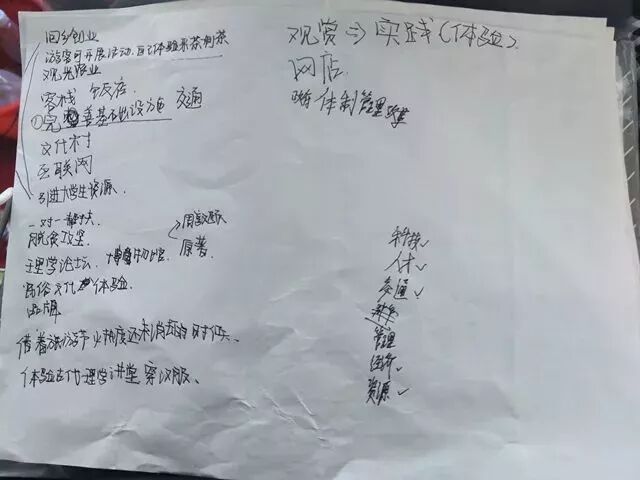 回乡创业
游客可开展活动,自己体验采茶制茶
观光农业
客栈 饭店
①完善基础设施 交通
文化村
互联网
引进大学生资源.
一对一帮扶
脱贫攻坚
理学论坛. 博物馆
周敦颐
原著.
民俗文化 体验.
品牌
借着旅游业热度还未消却的时候.
体验古代理学讲堂 穿汉服、
观赏⇒实践(体验).
网店
体制管理
科技
人才✓
交通✓
管理
经济✓
资源✓